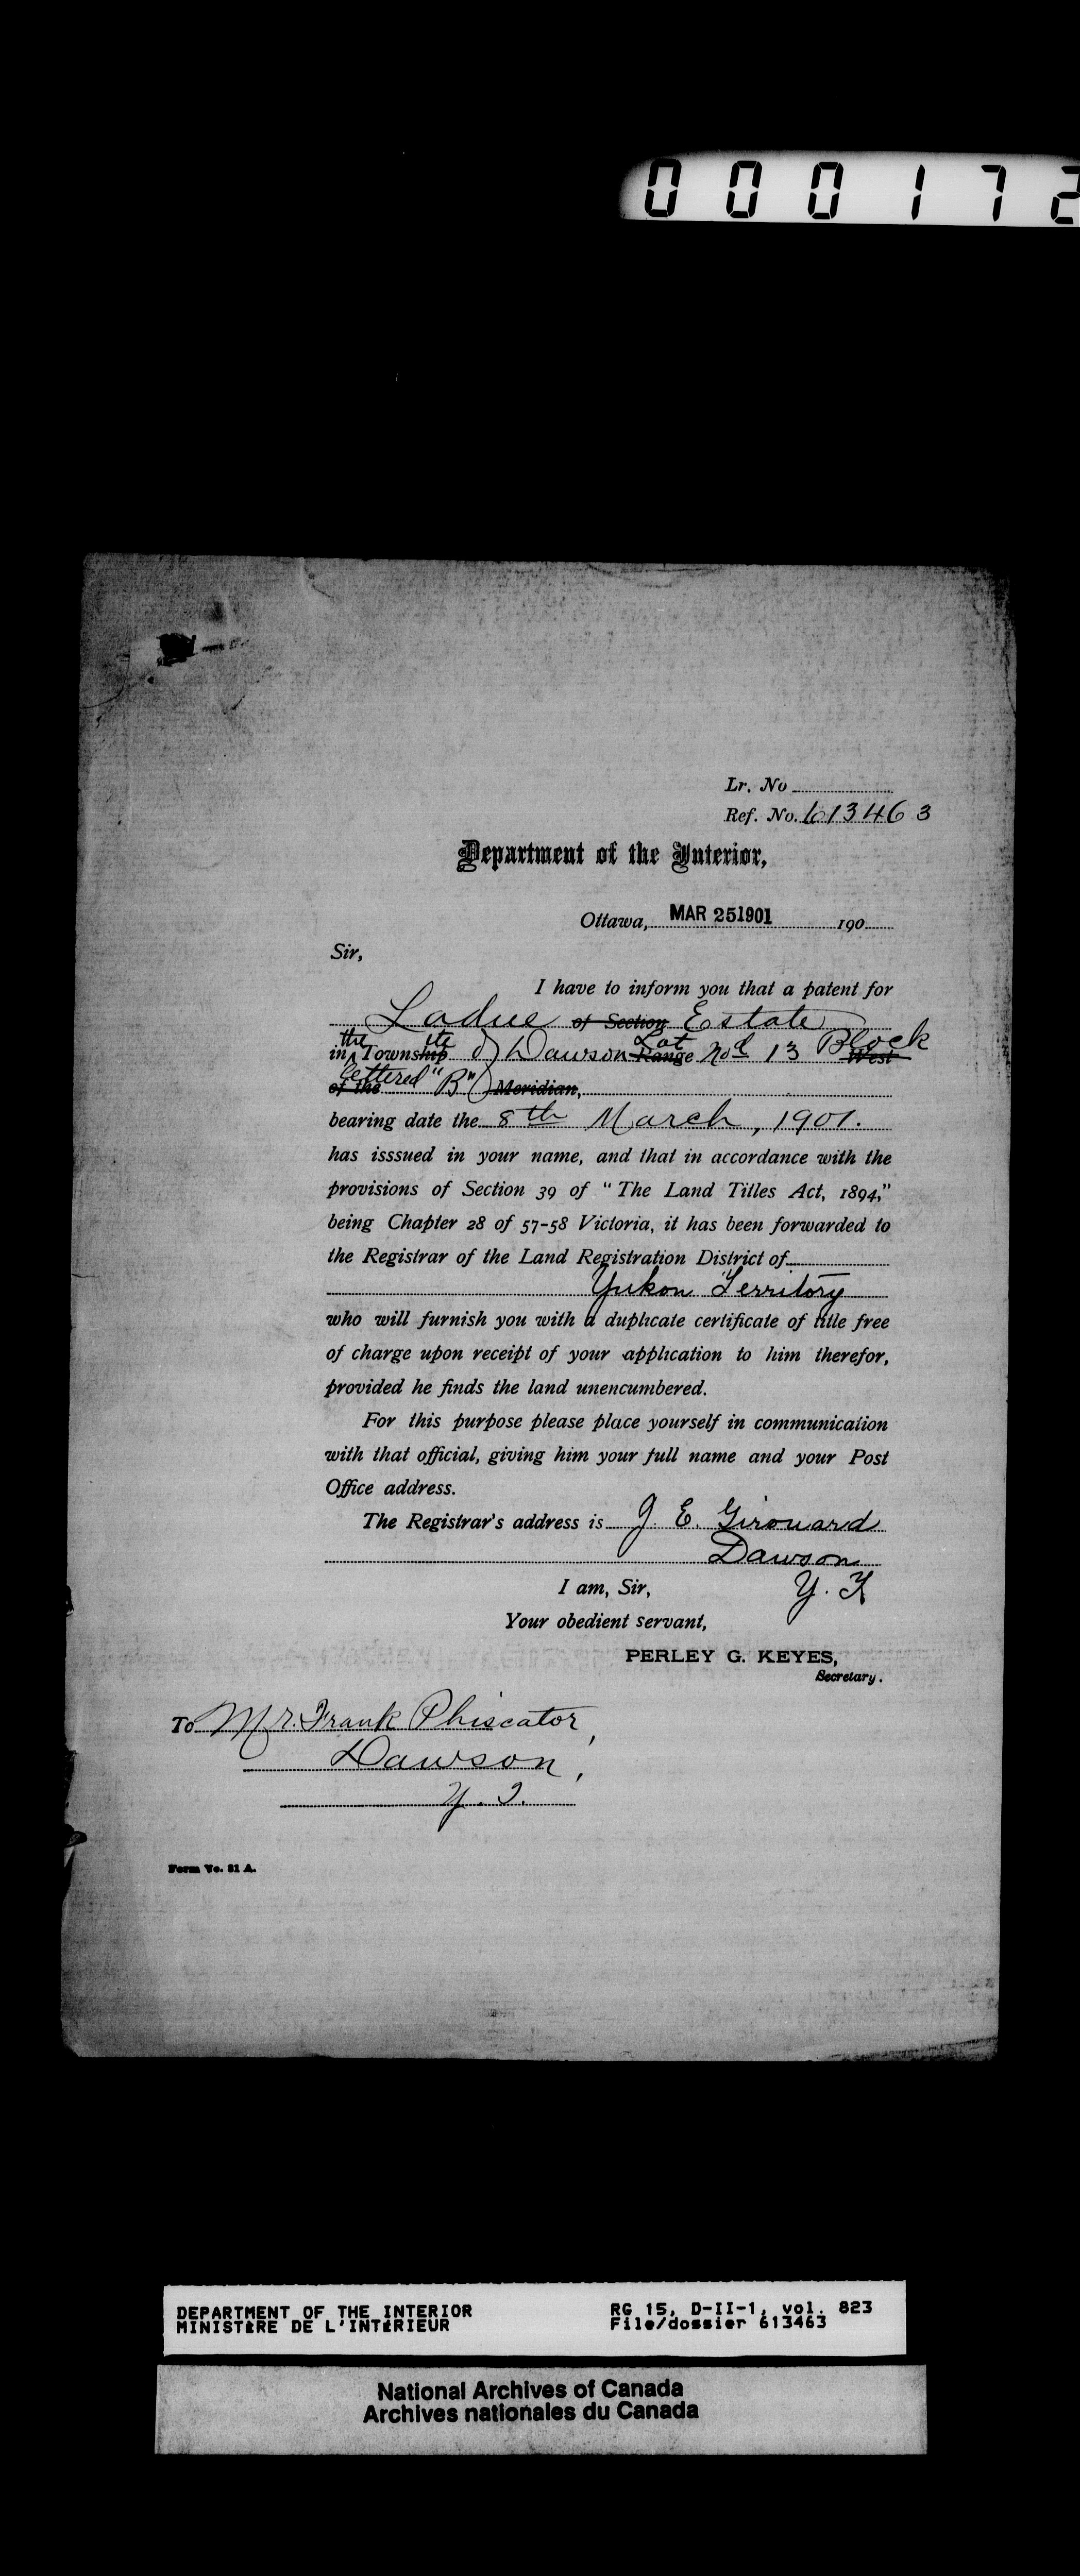 000172
Lr. No
Ref. No. 613463
Department of the Interior,
Ottawa, MAR 25 1901 190
Sir,
I have to inform you that a patent for
Ladue of Section Estate
in the Township ite of Dawson Range Lot No 13 West Block
of the lettered "B") Meridian,
bearing date the 8th March, 1901.
has isssued in your name, and that in accordance with the
provisions of Section 39 of "The Land Titles Act, 1894,"
being Chapter 28 of 57-58 Victoria, it has been forwarded to
the Registrar of the Land Registration District of
Yukon Territory
who will furnish you with a duplicate certificate of title free
of charge upon receipt of your application to him therefor,
provided he finds the land unencumbered.
For this purpose please place yourself in communication
with that official, giving him your full name and your Post
Office address.
The Registrar's address is J. E. Girouard
Dawson
I am, Sir, Y. T
Your obedient servant,
PERLEY G. KEYES,
Secretary.
To Mr. Frank Phiscator,
Dawson,
Y. T.
Form No. 21 A.
DEPARTMENT OF THE INTERIOR RG 15, D-II-1, vol. 823
MINISTÈRE DE L'INTÉRIEUR File/dossier 613463
National Archives of Canada
Archives nationales du Canada